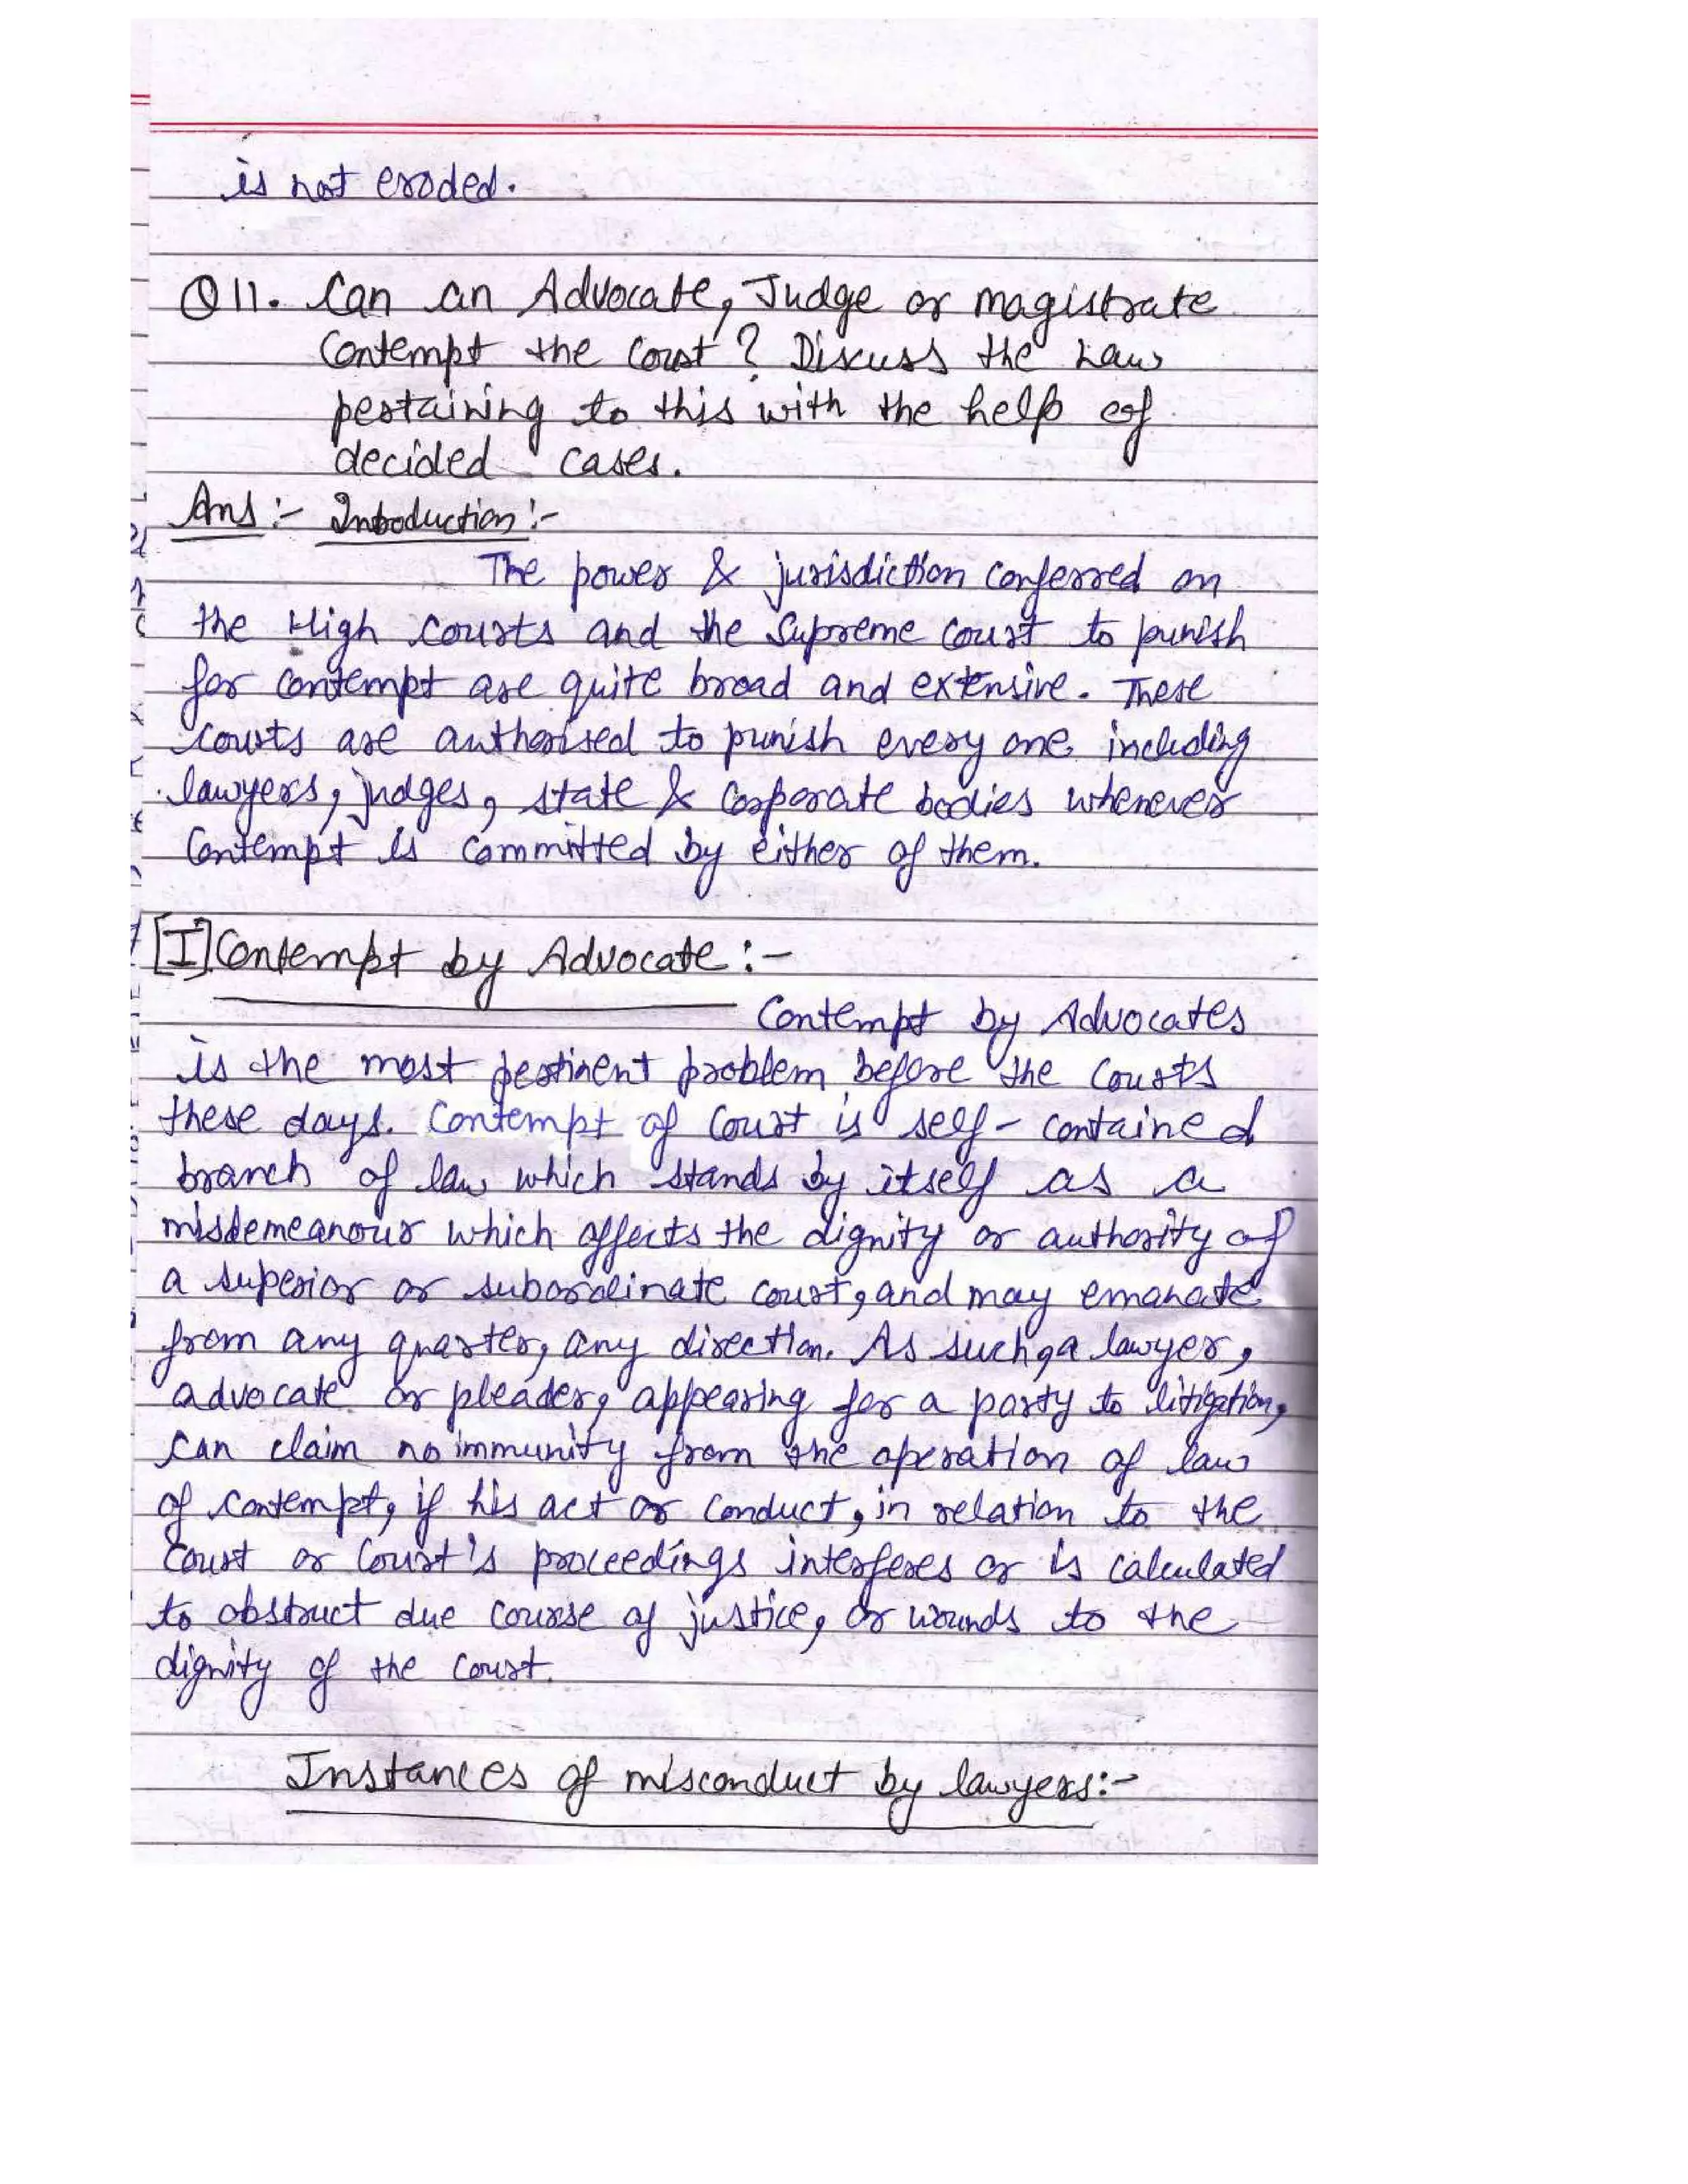 is not eroded.
Q11. Can an Advocate, Judge or magistrate
Contempt the Court? Discuss the Law
pertaining to this with the help of
decided cases.
Ans:- Introduction:-
The power & jurisdiction conferred on
the High Courts and the Supreme Court to punish
for contempt are quite broad and extensive. These
courts are authorised to punish every one including
lawyers, judges, state & Corporate bodies whenever
Contempt is committed by either of them.
[I] Contempt by Advocate:-
Contempt by Advocates
is the most pertinent problem before the Courts
these days. Contempt of Court is self-contained
branch of law which stands by itself as a
misdemeanour which affects the dignity or authority of
a superior or subordinate court, and may emanate
from any quarter, any direction. As such, a lawyer,
advocate or pleader, appearing for a party to litigation,
can claim no immunity from the operation of law
of contempt, if his act or conduct, in relation to the
Court or Court's proceedings interferes or is calculated
to obstruct due course of justice, or wounds to the
dignity of the Court.
Instances of misconduct by lawyers:-